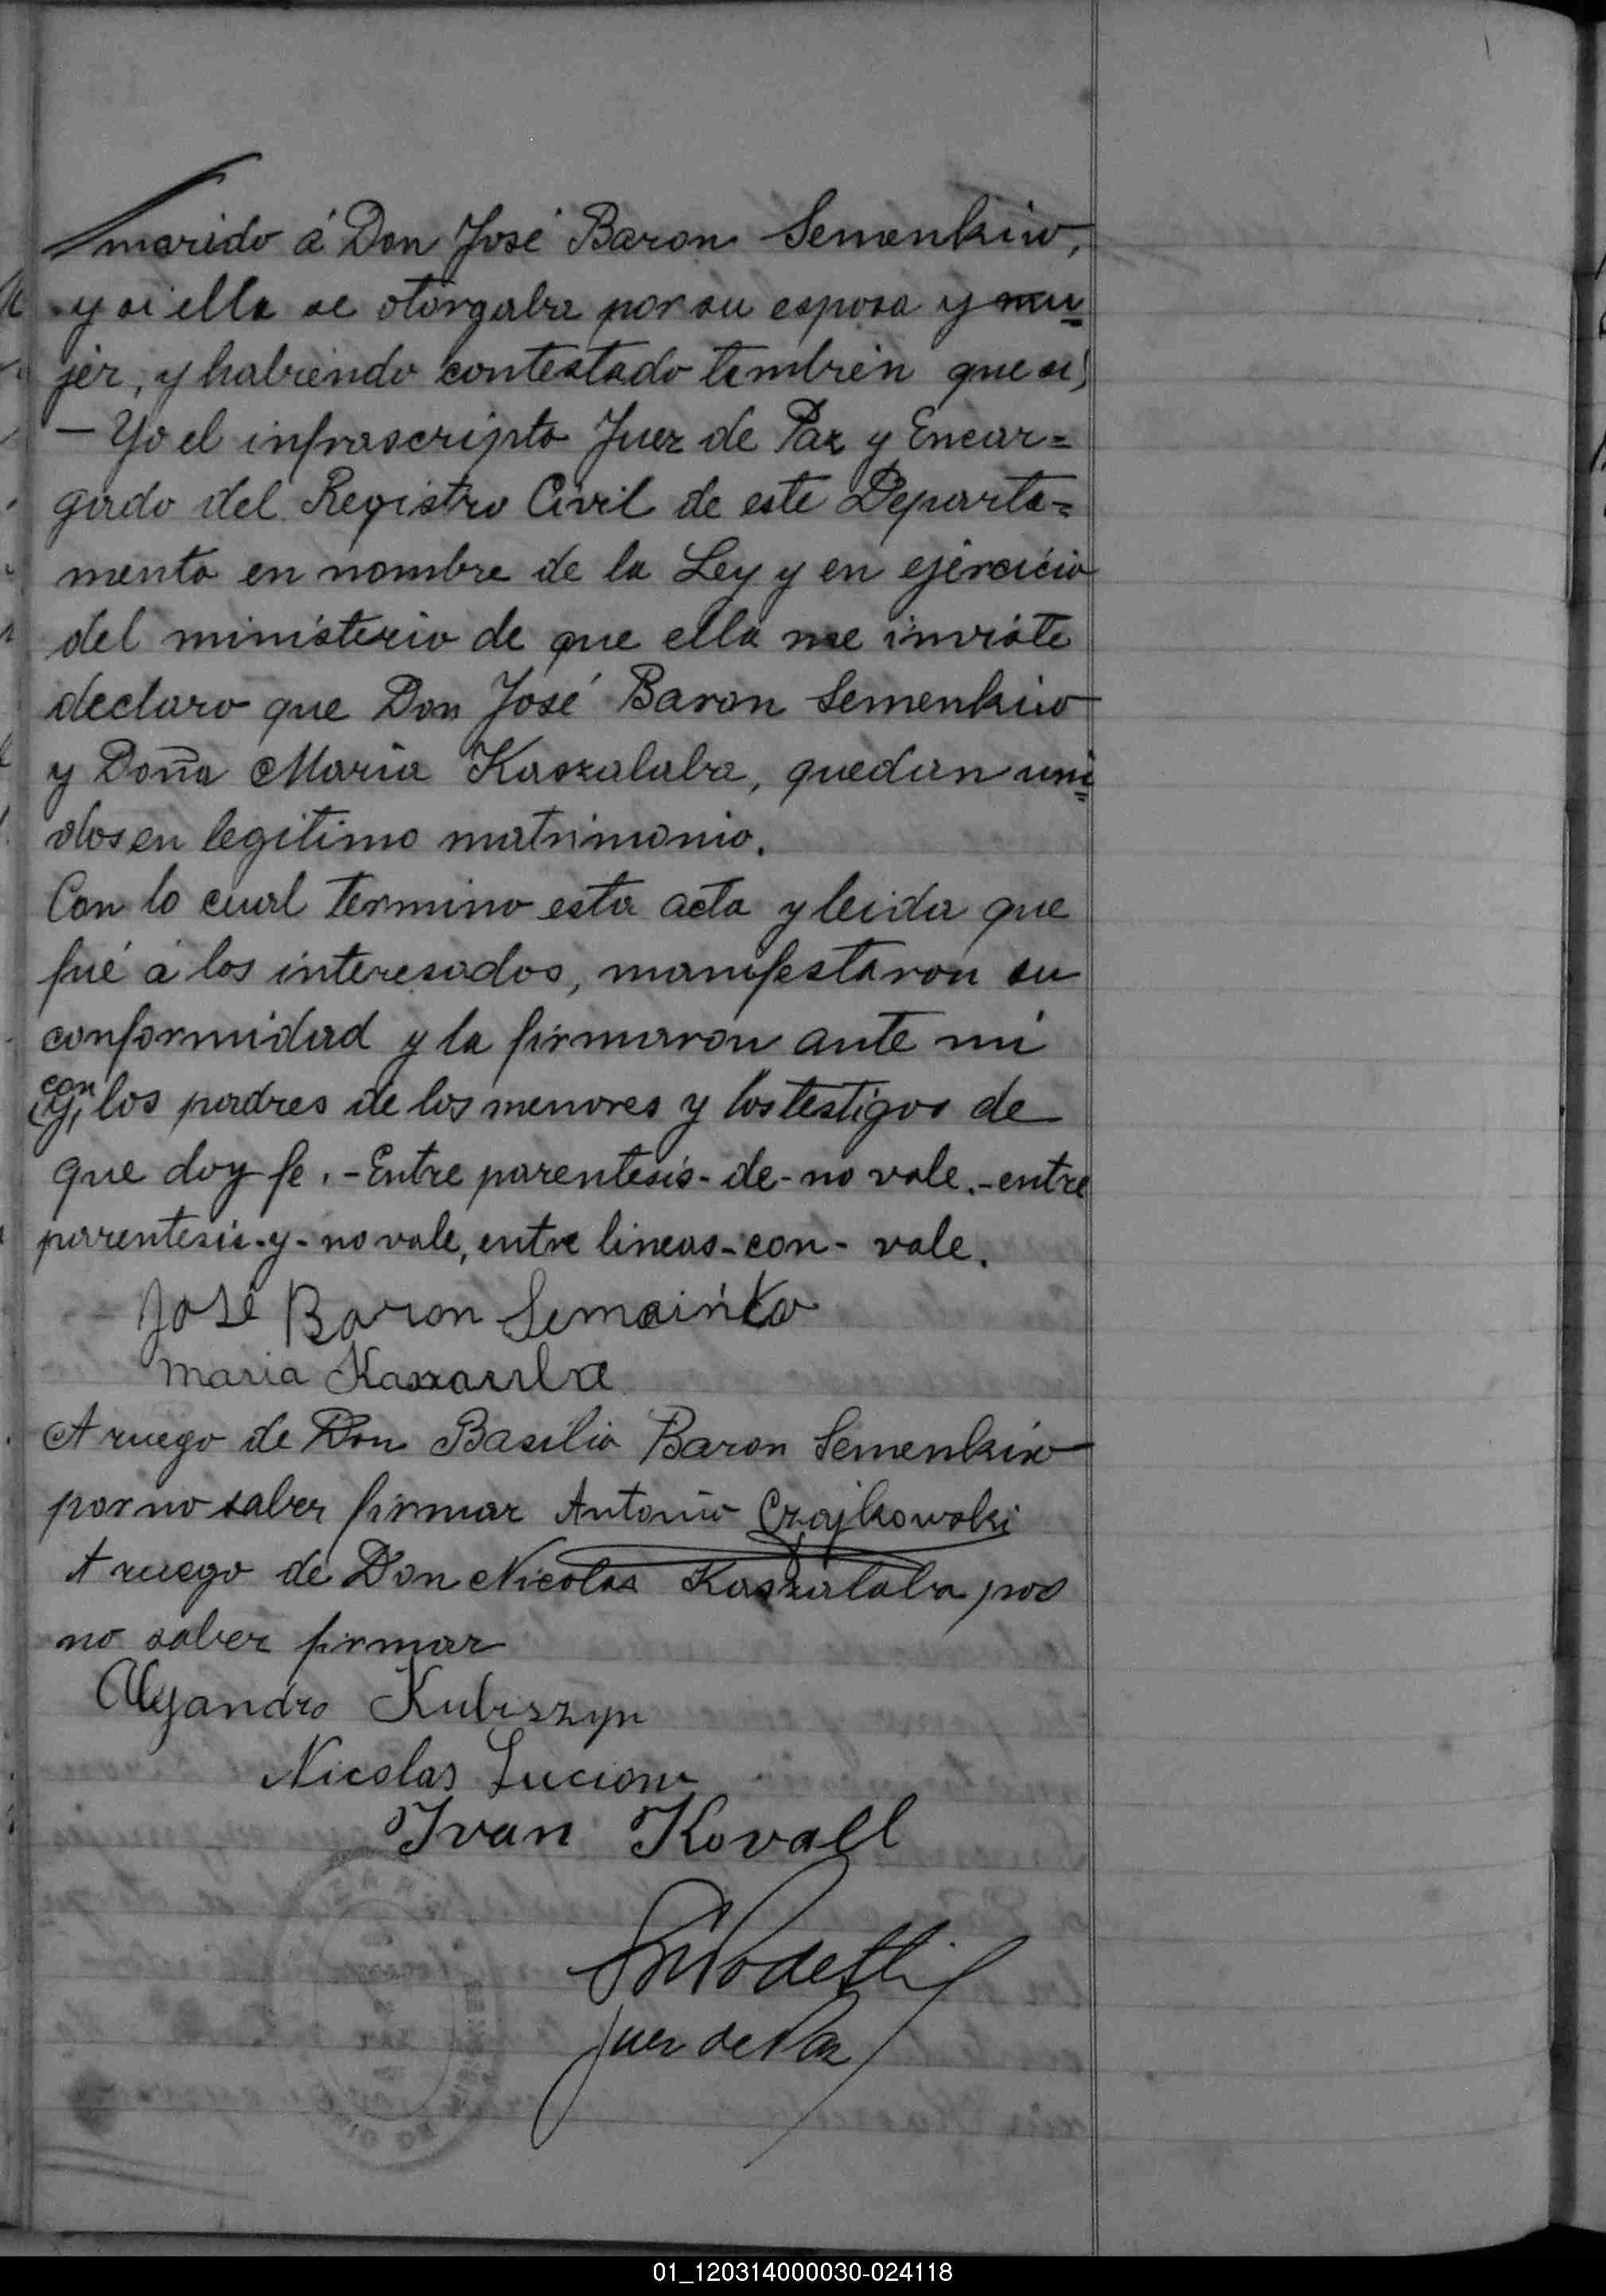 marido á Don José Baron Semenkiw,
y si ella se otorgaba por su esposa y mu
jer, y habiendo contestado tambien que si,
— Yo el infrascripto Juez de Paz y Encar=
gado del Registro Civil de este Departa=
mento en nombre de la Ley y en ejercicio
del ministerio de que ella me inviste
declaro que Don José Baron Semenkiw
y Doña Maria Kaszalaba, quedan uni
dos en legitimo matrimonio.
Con lo cual termino esta acta y leida que
fué á los interesados, manifestaron su
conformidad y la firmaron ante mi
con
(y) los padres de los menores y los testigos de
que doy fe. - Entre parentesis - de - no vale. - entre
parentesis - y - no vale, entre lineas - con - vale.
José Baron Semainko
Maria
A ruego de Don Basilio Baron Semenkiw
por no saber firmar Antonio Czajkowski
A ruego de Don Nicolas Kaszalaba por
no saber firmar
Alejandro Kubiszyn
Nicolas
Ivan Kovall
Juez de Paz
01_120314000030-024118